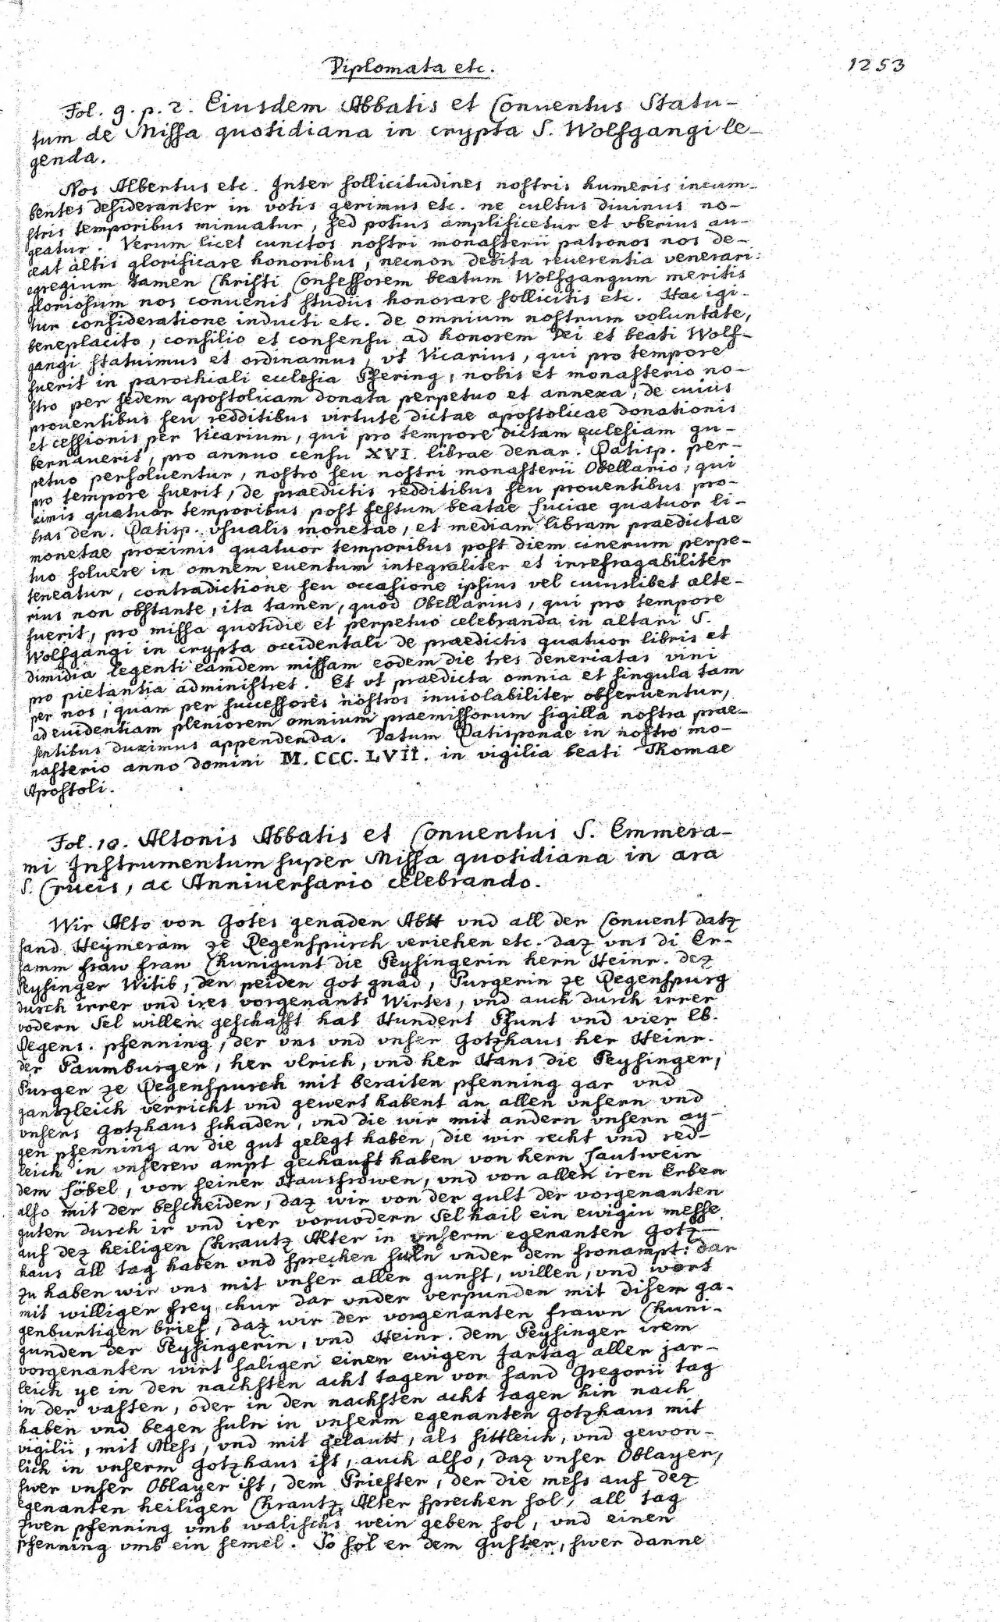 Diplomata etc.
1253
Fol. 9. p. 2. Eiusdem Abbatis et Conuentus Statu-
tum de Missa quotidiana in crypta S. Wolfgangi le-
genda.
Nos Albertus etc. Inter sollicitudines nostris humeris incum-
bentes desideranter in votis gerimus etc. ne cultus diuinus no-
stris temporibus minuatur, sed potius amplificetur et vberius au-
geatur. Verum licet cunctos nostri monasterii patronos nos de-
ceat altis glorificare honoribus, necnon debita reuerentia venerari:
egregium tamen Christi Confessorem beatum Wolfgangum meritis
gloriosum nos conuenit studiis honorare sollicitis etc. Hac igi-
tur consideratione inducti etc. de omnium nostrum voluntate,
beneplacito, consilio et consensu ad honorem Dei et beati Wolf-
gangi statuimus et ordinamus, vt Vicarius, qui pro tempore
fuerit in parochiali ecclesia Pfering, nobis et monasterio no-
stro per sedem apostolicam donata perpetuo et annexa, de cuius
prouentibus seu redditibus virtute dictae apostolicae donationis
et cessionis per Vicarium, qui pro tempore dictam ecclesiam gu-
bernauerit, pro annuo censu XVI. librae denar. Ratisp. per-
petuo persoluentur, nostro seu nostri monasterii Obellario, qui
pro tempore fuerit, de praedictis redditibus seu prouentibus pro-
ximis quatuor temporibus post festum beatae Luciae quatuor li-
bras den. Ratisp. vsualis monetae, et mediam libram praedictae
monetae proximis quatuor temporibus post diem cinerum perpe-
tuo soluere in omnem euentum integraliter et irrefragabiliter
teneatur, contradictione seu occasione ipsius vel cuiuslibet alte-
rius non obstante, ita tamen, quod Obellarius, qui pro tempore
fuerit, pro missa quotidie et perpetuo celebranda in altari S.
Wolfgangi in crypta occidentali de praedictis quatuor libris et
dimidia legenti eamdem missam eodem die tres deneriatas vini
pro pietantia administret. Et vt praedicta omnia et singula tam
per nos, quam per successores nostros inuiolabiliter obseruentur,
ad euidentiam pleniorem omnium praemissorum sigilla nostra prae-
sentibus duximus appendenda. Datum Ratisponae in nostro mo-
nasterio anno domini M.CCC.LVII. in vigilia beati Thomae
Apostoli.
Fol. 10. Altonis Abbatis et Conuentus S. Emmera-
mi Instrumentum super Missa quotidiana in ara
S. Crucis, ac Anniuersario celebrando.
Wir Alto von Gotes genaden Abtt vnd all der Conuent datz
sand Heymeram ze Regenspurch veriehen etc. daz vns di Er-
samm fraw fraw Chunigunt die Peysingerin hern Heinr. dez
Peysinger Witib, den peiden got gnad, Purgerin ze Regenspurg
durch irrer vnd ires vorgenants Wirtes, vnd auch durch irrer
vodern Sel willen geschafft hat Hundert Pfunt vnd vier lb.
Regens. pfenning, der vns vnd vnser Gotzhaus her Heinr.
der Paumburger, her Vlrich, vnd her Hans die Peysinger,
Purger ze Regenspurch mit beraiten pfenning gar vnd
gantzleich verricht vnd gewert habent an allen vnsern vnd
vnsers Gotzhaus schaden, vnd die wir mit andern vnsern ay-
gen pfenning an die gut gelegt haben, die wir recht vnd red-
leich in vnserew ampt gechauft haben von hern Lautwein
dem Löbel, von seiner Hausfrowen, vnd von allen iren Erben
also mit der bescheiden, daz wir von der gult der vorgenanten
guten durch ir vnd irer voruodern Sel hail ein ewigin messe
auf dez heiligen Chrautz Alter in vnserm egenanten Gotz-
haus all tag haben vnd sprechen suln vnder dem fronampt: dar
zu haben wir vns mit vnser aller gunst, willen, vnd wort
mit willigen frey chur dar vnder verpunden mit disem ga-
genburtigen brief, daz wir der vorgenanten frawn Chuni-
gunden der Peysingerin, vnd Heinr. dem Peysinger irem
vorgenanten wirt saligen einen ewigen Jartag aller jar-
leich ye in den nachsten acht tagen vor sand Gregorii tag
in der vasten, oder in den nachsten acht tagen hin nach
haben vnd begen suln in vnserm egenanten Gotzhaus mit
vigilii, mit Mess, vnd mit gelautt, als sittleich, vnd gewon-
lich in vnserm Gotzhaus ist, auch also, daz vnser Oblayer,
swer vnser Oblayer ist, dem Priester, der die mess auf dez
egenanten heiligen Chrautz Alter sprechen sol, all tag
zwen pfenning vmb walischs wein geben sol, vnd einen
pfenning vmb ein semel. So sol er dem Guster, swer danne